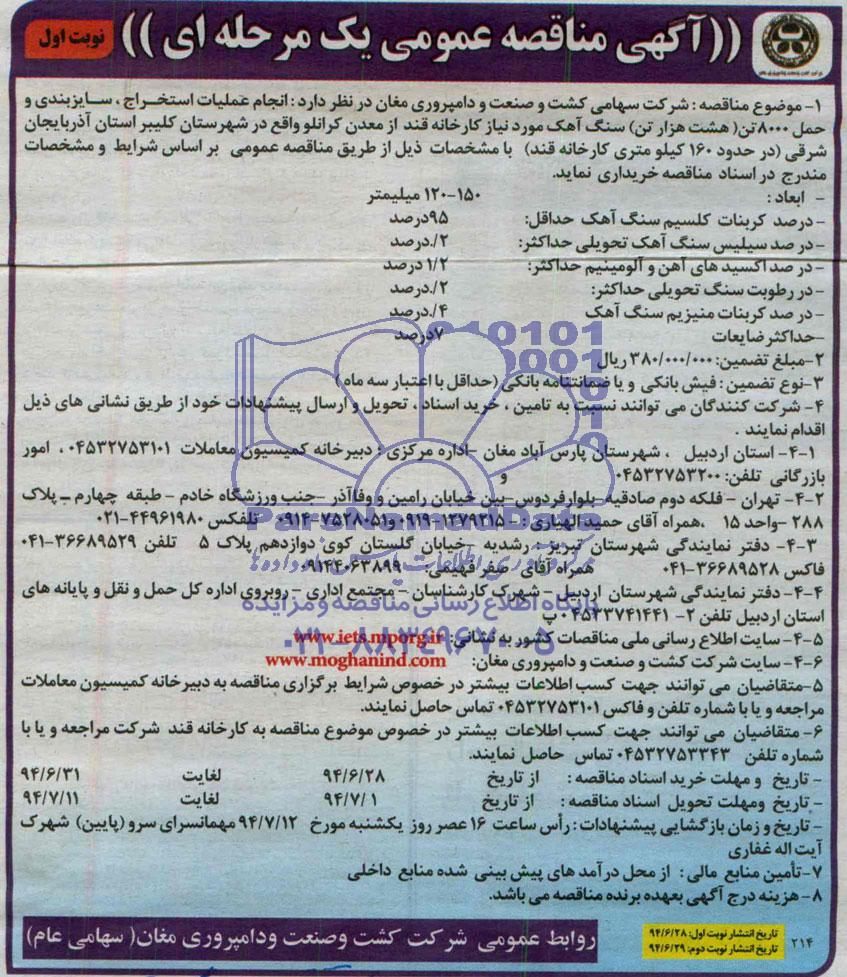 ((آگهی مناقصه عمومی یک مرحله ای))
نوبت اول
۱- موضوع مناقصه: شرکت سهامی کشت و صنعت و دامپروری مغان در نظر دارد: انجام عملیات استخراج، سایزبندی و
حمل ۸۰۰۰تن( هشت هزار تن) سنگ آهک مورد نیاز کارخانه قند از معدن کرانلو واقع در شهرستان کلیبر استان آذربایجان
شرقی (در حدود ۱۶۰ کیلو متری کارخانه قند) با مشخصات ذیل از طریق مناقصه عمومی بر اساس شرایط و مشخصات
مندرج در اسناد مناقصه خریداری نماید.
- ابعاد: ۱۵۰-۱۲۰ میلیمتر
- درصد کربنات کلسیم سنگ آهک حداقل: ۹۵درصد
- در صد سیلیس سنگ آهک تحویلی حداکثر: ۲/.درصد
- در صد اکسید های آهن و آلومینیم حداکثر: ۱/۲ درصد
- در رطوبت سنگ تحویلی حداکثر: ۲/.درصد
- در صد کربنات منیزیم سنگ آهک ۴/.درصد
-حداکثر ضایعات ۷درصد
۲-مبلغ تضمین: ۳۸۰/۰۰۰/۰۰۰ ریال
۳-نوع تضمین: فیش بانکی و یا ضمانتنامه بانکی (حداقل با اعتبار سه ماه)
۴- شرکت کنندگان می توانند نسبت به تامین، خرید اسناد، تحویل و ارسال پیشنهادات خود از طریق نشانی های ذیل
اقدام نمایند.
۴-۱- استان اردبیل، شهرستان پارس آباد مغان -اداره مرکزی: دبیرخانه کمیسیون معاملات ۰۴۵۳۲۷۵۳۱۰۱، امور
بازرگانی تلفن: ۰۴۵۳۲۷۵۳۲۰۰ و
۴-۲- تهران - فلکه دوم صادقیه-بلوارفردوس-بین خیابان رامین و وفاآذر -جنب ورزشگاه خادم - طبقه چهارم - پلاک
۲۸۸ -واحد ۱۵، همراه آقای حمید الهیاری: ۰۹۱۹-۱۲۷۹۳۱۵ و ۰۹۱۴-۷۵۲۸۰۵۱ تلفکس ۴۴۹۶۱۹۸۰-۰۲۱
۴-۳- دفتر نمایندگی شهرستان تبریز- رشدیه -خیابان گلستان کوی دوازدهم پلاک ۵ تلفن ۳۶۶۸۹۵۲۹-۰۴۱
فاکس ۳۶۶۸۹۵۲۸-۰۴۱ همراه آقای صفر فهیمی: ۰۹۱۴۴۰۶۳۸۹۹
۴-۴- دفتر نمایندگی شهرستان اردبیل - شهرک کارشناسان - مجتمع اداری - روبروی اداره کل حمل و نقل و پایانه های
استان اردبیل تلفن ۲- ۰۴۵۳۳۷۴۱۴۴۱ پ
۴-۵- سایت اطلاع رسانی ملی مناقصات کشور به نشانی: www.iets.mporg.ir
۴-۶- سایت شرکت کشت و صنعت و دامپروری مغان: www.moghanind.com
۵-متقاضیان می توانند جهت کسب اطلاعات بیشتر در خصوص شرایط برگزاری مناقصه به دبیرخانه کمیسیون معاملات
مراجعه و یا با شماره تلفن و فاکس ۰۴۵۳۲۷۵۳۱۰۱ تماس حاصل نمایند.
۶- متقاضیان می توانند جهت کسب اطلاعات بیشتر در خصوص موضوع مناقصه به کارخانه قند شرکت مراجعه و یا با
شماره تلفن ۰۴۵۳۲۷۵۳۳۴۳ تماس حاصل نمایند.
- تاریخ و مهلت خرید اسناد مناقصه: از تاریخ ۹۴/۶/۲۸ لغایت ۹۴/۶/۳۱
- تاریخ ومهلت تحویل اسناد مناقصه: از تاریخ ۹۴/۷/۱ لغایت ۹۴/۷/۱۱
- تاریخ و زمان بازگشایی پیشنهادات: رأس ساعت ۱۶ عصر روز یکشنبه مورخ ۹۴/۷/۱۲ مهمانسرای سرو (پایین) شهرک
آیت اله غفاری
۷-تأمین منابع مالی: از محل درآمد های پیش بینی شده منابع داخلی
۸- هزینه درج آگهی بعهده برنده مناقصه می باشد.
روابط عمومی شرکت کشت وصنعت ودامپروری مغان( سهامی عام)
تاریخ انتشار نوبت اول: ۹۴/۶/۲۸
تاریخ انتشار نوبت دوم: ۹۴/۶/۲۹
۲۱۴
ParsNamadData
پایگاه اطلاع رسانی مناقصه و مزایده
۰۲۱-۸۸۳۴۹۶۷۰-۵